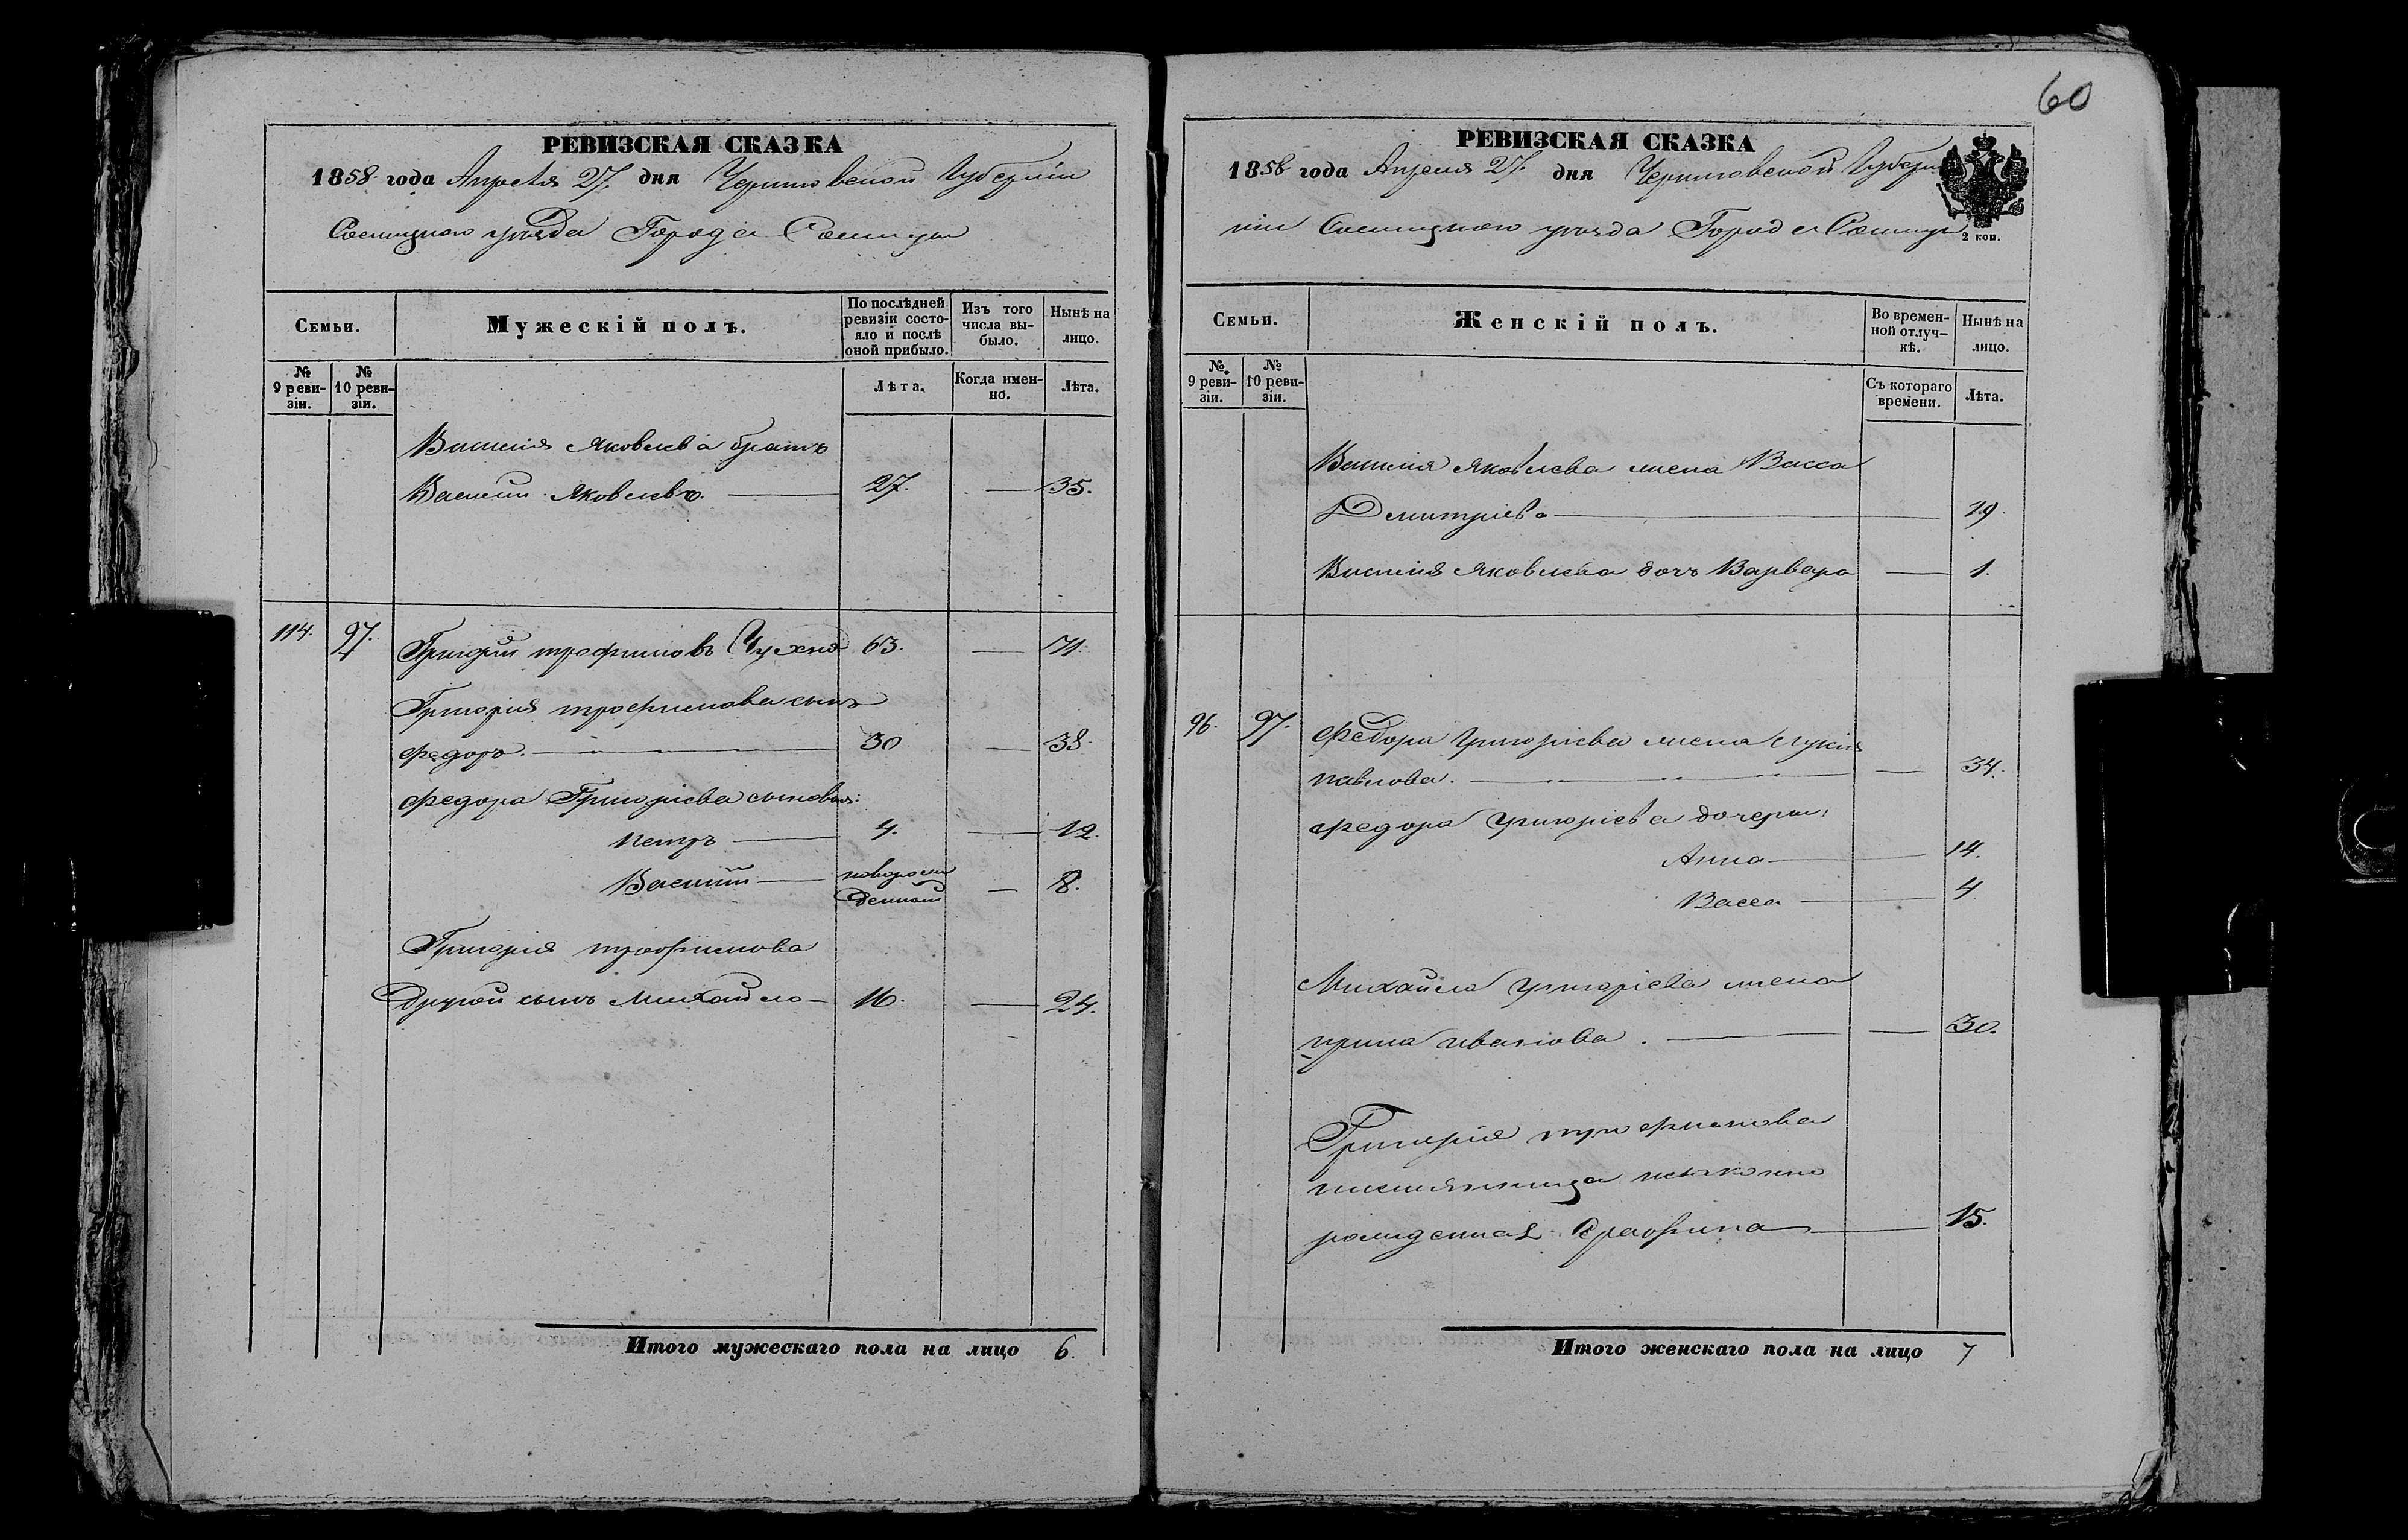 60
РЕВИЗСКАЯ СКАЗКА
1858 года Апреля 27. дня Черниговской Губерніи
Сосницкого уезда Города Сосницы
Семьи.
Мужескій полъ.
По послѣдней ревизіи состояло и послѣ оной прибыло.
Изъ того числа выбыло.
Нынѣ на лицо.
№ 9 ревизіи.
№ 10 ревизіи.
Лѣта.
Когда именно.
Лѣта.
Яковлева братъ
Василій Яковлевъ. — 27. — 35.
114. 97. Григорій трофимовъ Чухно 63. — 71.
Григорія трофимова сынъ
федоръ. — 30 — 38.
федора Григоріева сыновья:
петръ — 4. — 12.
Василій — новорож
денный — 8.
Григорія трофимова
Другой сынъ Михайло — 16. — 24.
Итого мужескаго пола на лицо 6.
РЕВИЗСКАЯ СКАЗКА
1858 года Апреля 27. дня Черниговской Губер
ніи Сосницкого уезда Города Сосницы
2 коп.
Семьи.
Женскій полъ.
Во временной отлучкѣ.
Нынѣ на лицо.
№ 9 ревизіи.
№ 10 ревизіи.
Съ котораго времени.
Лѣта.
Василія Яковлева жена Васса
Дмитріева — 19.
Василія Яковлева дочь Варвара — 1.
96. 97. федора Григоріева жена Лукія
павлова. — — 34.
федора Григоріева дочери:
Анна — 14.
Васса — 4
Михайла Григоріева жена
ирина иванова. — — 30.
Григорія трофимова
племянница незаконно
рожденная — 15.
Итого женскаго пола на лицо 7